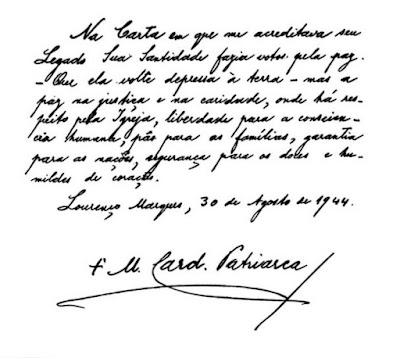 Na Carta em que me acreditava seu
Legado Sua Santidade fazia votos pela paz.
- Que ela volte depressa à terra - mas a
paz na justiça e na caridade, onde há res-
peito pela Igreja, liberdade para a conscien-
cia humana, pão para as famílias, garantia
para as nações, segurança para os doces e hu-
mildes de coração.
Lourenço Marques, 30 de Agosto de 1944.
† M. Card. Patriarca